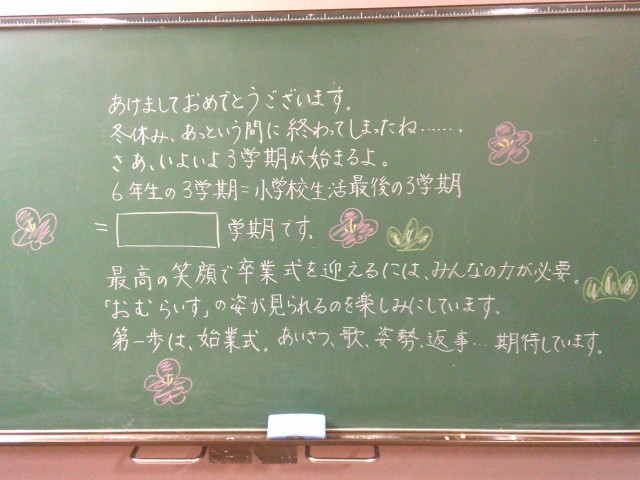 あけましておめでとうございます。
冬休み、あっという間に終わってしまったね……．
さあ、いよいよ3学期が始まるよ。
6年生の3学期＝小学校生活最後の3学期
＝ 学期です。
最高の笑顔で卒業式を迎えるには、みんなの力が必要。
「おむらいす」の姿が見られるのを楽しみにしています。
第一歩は、始業式。あいさつ、歌、姿勢、返事…期待しています。